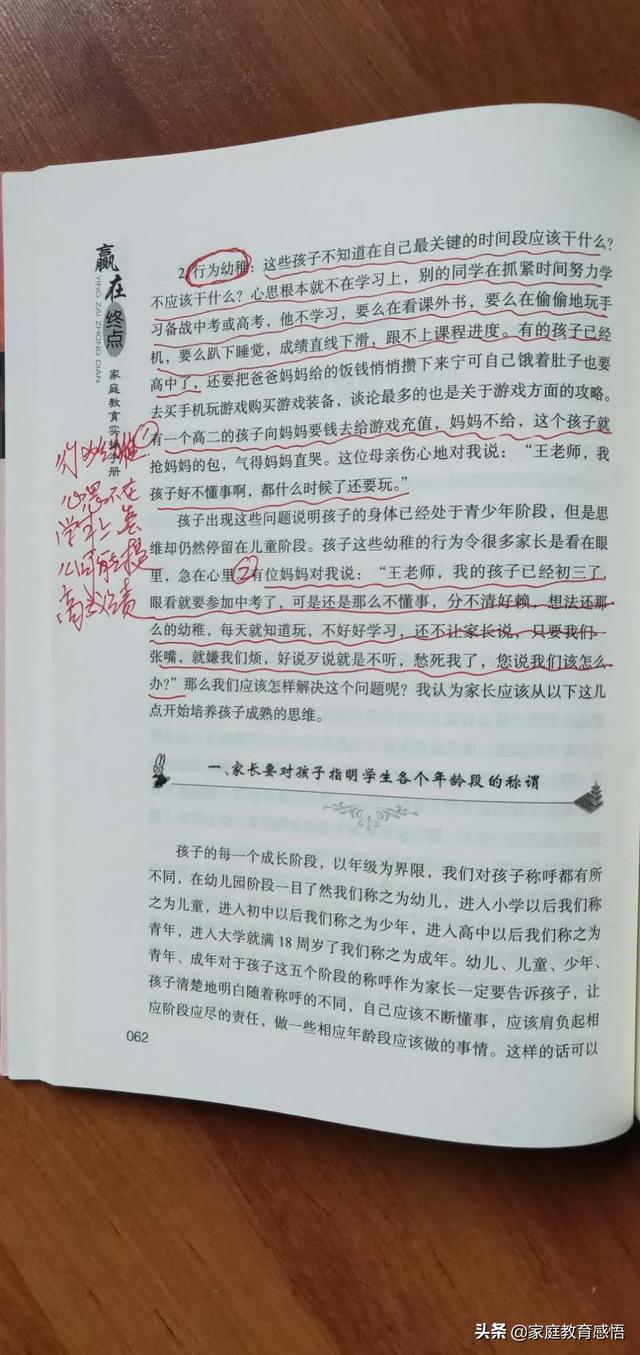 赢在终点
YING ZAI ZHONG DIAN
家庭教育实 册
2.行为幼稚：这些孩子不知道在自己最关键的时间段应该干什么？
不应该干什么？心思根本就不在学习上，别的同学在抓紧时间努力学
习备战中考或高考，他不学习，要么在看课外书，要么在偷偷地玩手
机，要么趴下睡觉，成绩直线下滑，跟不上课程进度。有的孩子已经
高中了，还要把爸爸妈妈给的饭钱悄悄攒下来宁可自己饿着肚子也要
去买手机玩游戏购买游戏装备，谈论最多的也是关于游戏方面的攻略。
①
有一个高二的孩子向妈妈要钱去给游戏充值，妈妈不给，这个孩子就
抢妈妈的包，气得妈妈直哭。这位母亲伤心地对我说：“王老师，我
孩子好不懂事啊，都什么时候了还要玩。”
行为幼稚
心思不在
学习上 怎
么可能提
高成绩
孩子出现这些问题说明孩子的身体已经处于青少年阶段，但是思
维却仍然停留在儿童阶段。孩子这些幼稚的行为令很多家长是看在眼
里，急在心里②有位妈妈对我说：“王老师，我的孩子已经初三了，
眼看就要参加中考了，可是还是那么不懂事，分不清好赖，想法还那
么的幼稚，每天就知道玩，不好好学习，还不让家长说，只要我们一
张嘴，就嫌我们烦，好说歹说就是不听，愁死我了，您说我们该怎么
办？”那么我们应该怎样解决这个问题呢？我认为家长应该从以下这几
点开始培养孩子成熟的思维。
一、家长要对孩子指明学生各个年龄段的称谓
孩子的每一个成长阶段，以年级为界限，我们对孩子称呼都有所
不同，在幼儿园阶段一目了然我们称之为幼儿，进入小学以后我们称
之为儿童，进入初中以后我们称之为少年，进入高中以后我们称之为
青年，进入大学就满 18 周岁了我们称之为成年。幼儿、儿童、少年、
青年、成年对于孩子这五个阶段的称呼作为家长一定要告诉孩子，让
孩子清楚地明白随着称呼的不同，自己应该不断懂事，应该肩负起相
应阶段应尽的责任，做一些相应年龄段应该做的事情。这样的话可以
062
头条 @家庭教育感悟